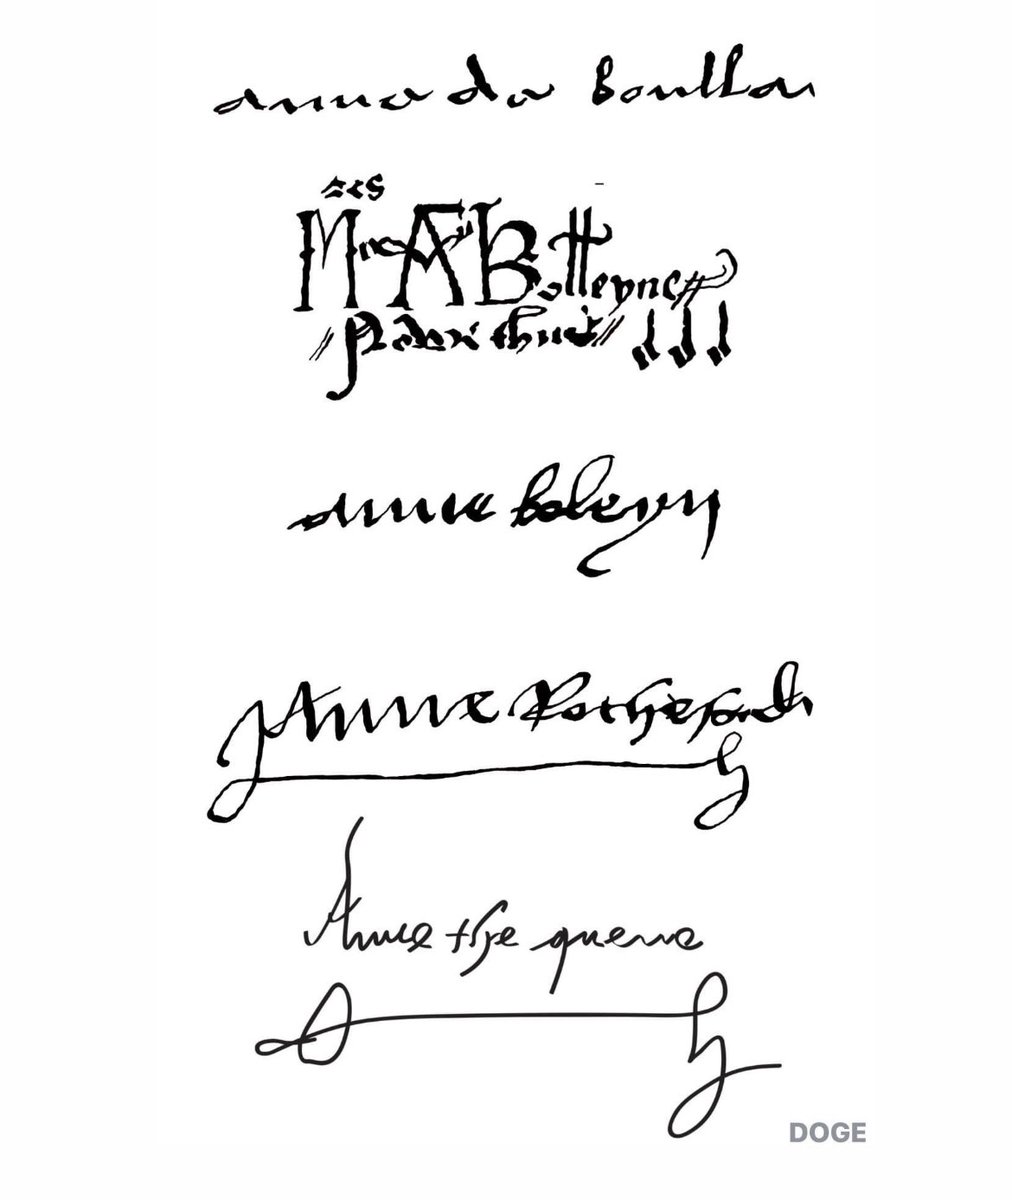 anna de boullan
Mres A Bolleyne
Anne boleyn
Anne Rocheford
Anne the quene
DOGE